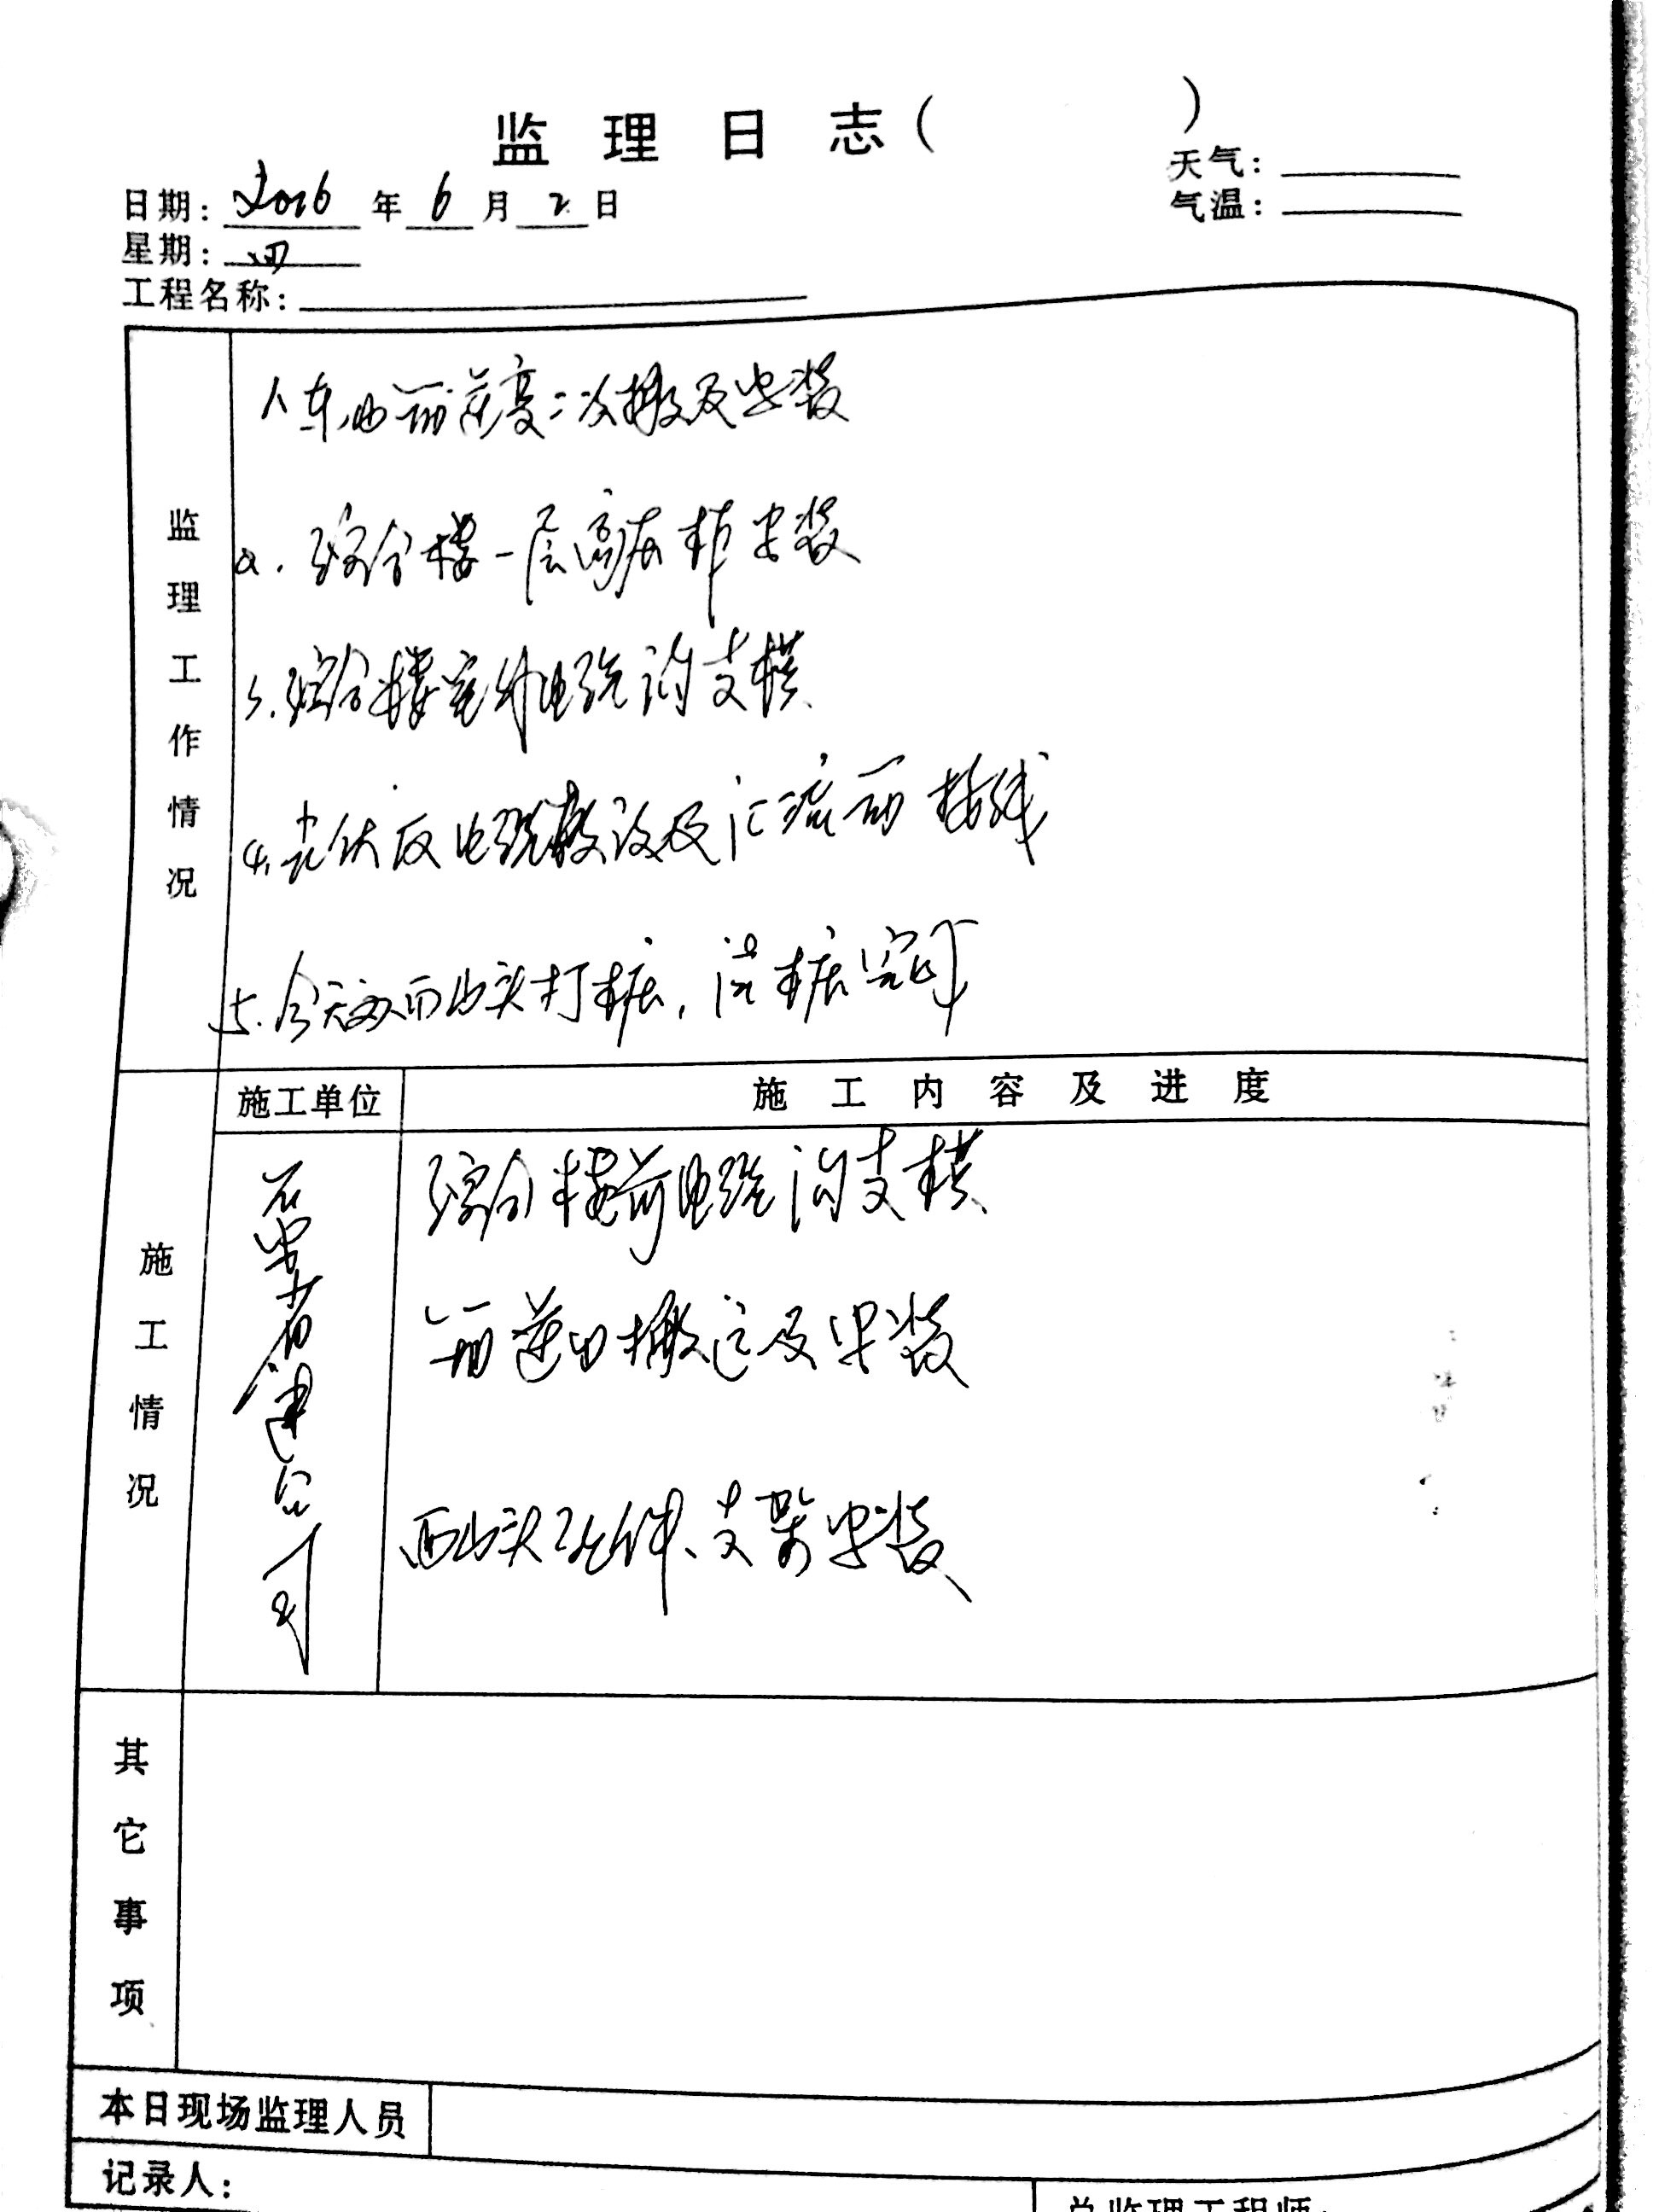 监理日志（ ）
天气：
日期：2016年6月2日
气温：
星期：四
工程名称：
监理工作情况
1、车
二次搬及安装
2、综合楼一层高压柜安装
3、综合楼室外电缆沟支模
4、光伏区电缆敷设及汇流箱接线
5、今天西山头打桩，
桩完
施工单位
施工内容及进度
施工情况
公司
综合楼前电缆沟支模
箱逆
搬运及安装
西山头
件、支架安装
其它事项
本日现场监理人员
记录人：
总监理工程师：